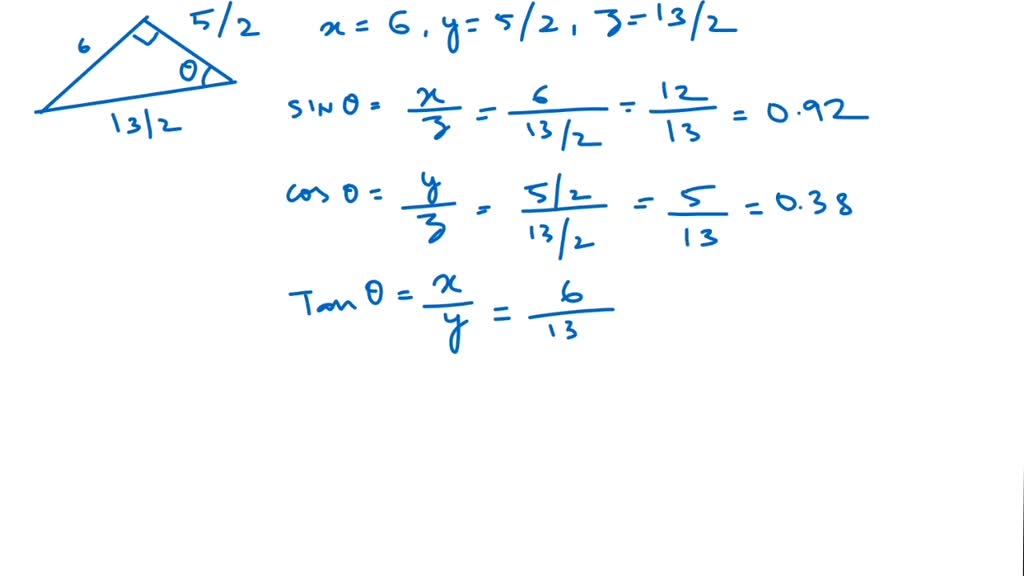 5/2
6
θ
13/2
x = 6, y = 5/2, z = 13/2
sin θ = x/z = 6/(13/2) = 12/13 = 0.92
cos θ = y/z = (5/2)/(13/2) = 5/13 = 0.38
Tan θ = x/y = 6/13